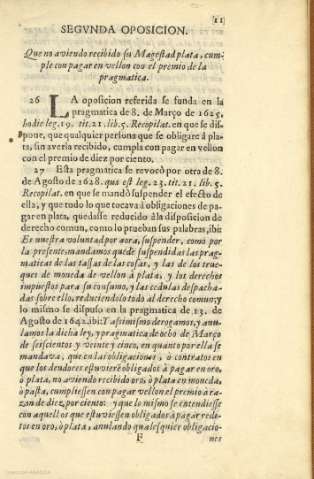 [11]
SEGVNDA OPOSICION.
Que no aviendo recibido su Magestad plata, cum-
ple con pagar en vellon con el premio de la
pragmatica.
26 LA oposicion referida se funda en la
pragmatica de 8. de Março de 1625.
hodie leg. 19. tit. 21. lib. 5. Recopilat. en que se dis-
pone, que qualquier persona que se obligare á pla-
ta, sin averla recibido, cumpla con pagar en vellon
con el premio de diez por ciento.
27 Esta pragmatica se revocò por otra de 8.
de Agosto de 1628. que est leg. 23. tit. 21. lib. 5.
Recopilat. en que se mandó suspender el efecto de
ella, y que todo lo que tocava á obligaciones de pa-
gar en plata, quedasse reducido à la disposicion de
derecho comun, como lo prueban sus palabras, ibi:
Es nuestra voluntad por aora, suspender, como por
la presente mandamos quede suspendidas las prag-
maticas de las tassas de las cosas, y las de los true-
ques de moneda de vellon á plata, y los derechos
impuestos para su consumo, y las cedulas despacha-
das sobre ello, reduciendolo todo al derecho comun; y
lo mismo se dispuso en la pragmatica de 23. de
Agosto de 1642. ibi: Y assimismo derogamos, y anu-
lamos la dicha ley, y pragmatica de ocho de Março
de seiscientos y veinte y cinco, en quanto por ella se
mandava, que en las obligaciones, ò contratos en
que los deudores estuvieré obligados à pagar en oro,
ò plata, no aviendo recibido oro, ò plata en moneda,
ò pasta, cumpliessen con pagar vellon el premio à ra-
zon de diez por ciento: y que lo mismo se entendiesse
con aquellos que estuviessen obligados à pagar redi-
tos en oro, ò plata, anulando qualesquier obligacio-
F nes